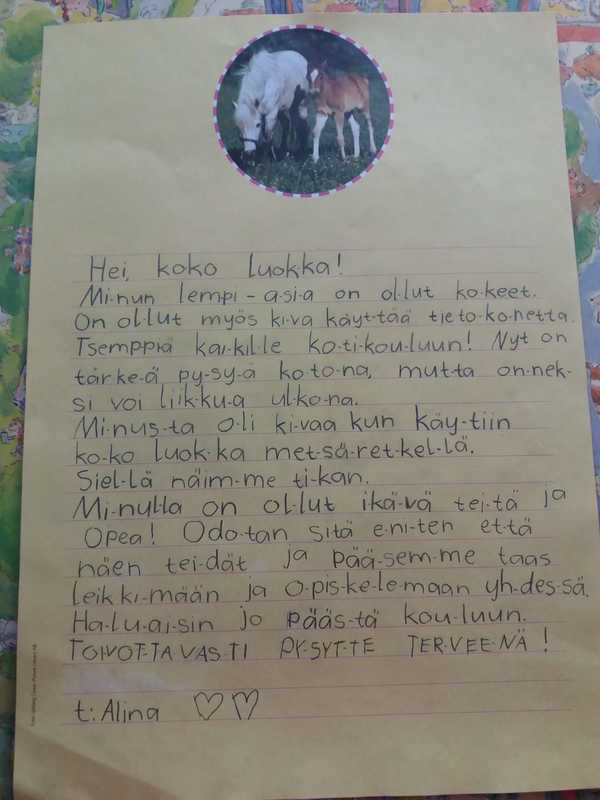 Hei, koko luokka!
Mi-nun lempi-a-si-a on ol-lut ko-keet.
On ol-lut myös ki-va käyt-tää tie-to-ko-netta.
Tsemppiä kai-kil-le ko-ti-kou-luun! Nyt on
tär-ke-ä py-sy-ä ko-to-na, mut-ta on-nek-
si voi liik-ku-a ulko-na.
Mi-nus-ta o-li ki-vaa kun käy-tiin
ko-ko luok-ka met-sä-ret-kel-lä.
Siel-lä näim-me ti-kan.
Mi-nulla on ol-lut ikä-vä tei-tä ja
Opea! Odo-tan sitä e-ni-ten et-tä
näen tei-dät ja pää-sem-me taas
leikki-mään ja o-pis-ke-le-maan yh-des-sä.
Ha-lu-ai-sin jo pääs-tä kou-luun.
TOIVOT-TA-VAS-TI PY-SYT-TE TER-VEE-NÄ!
t: Alina ♡♡